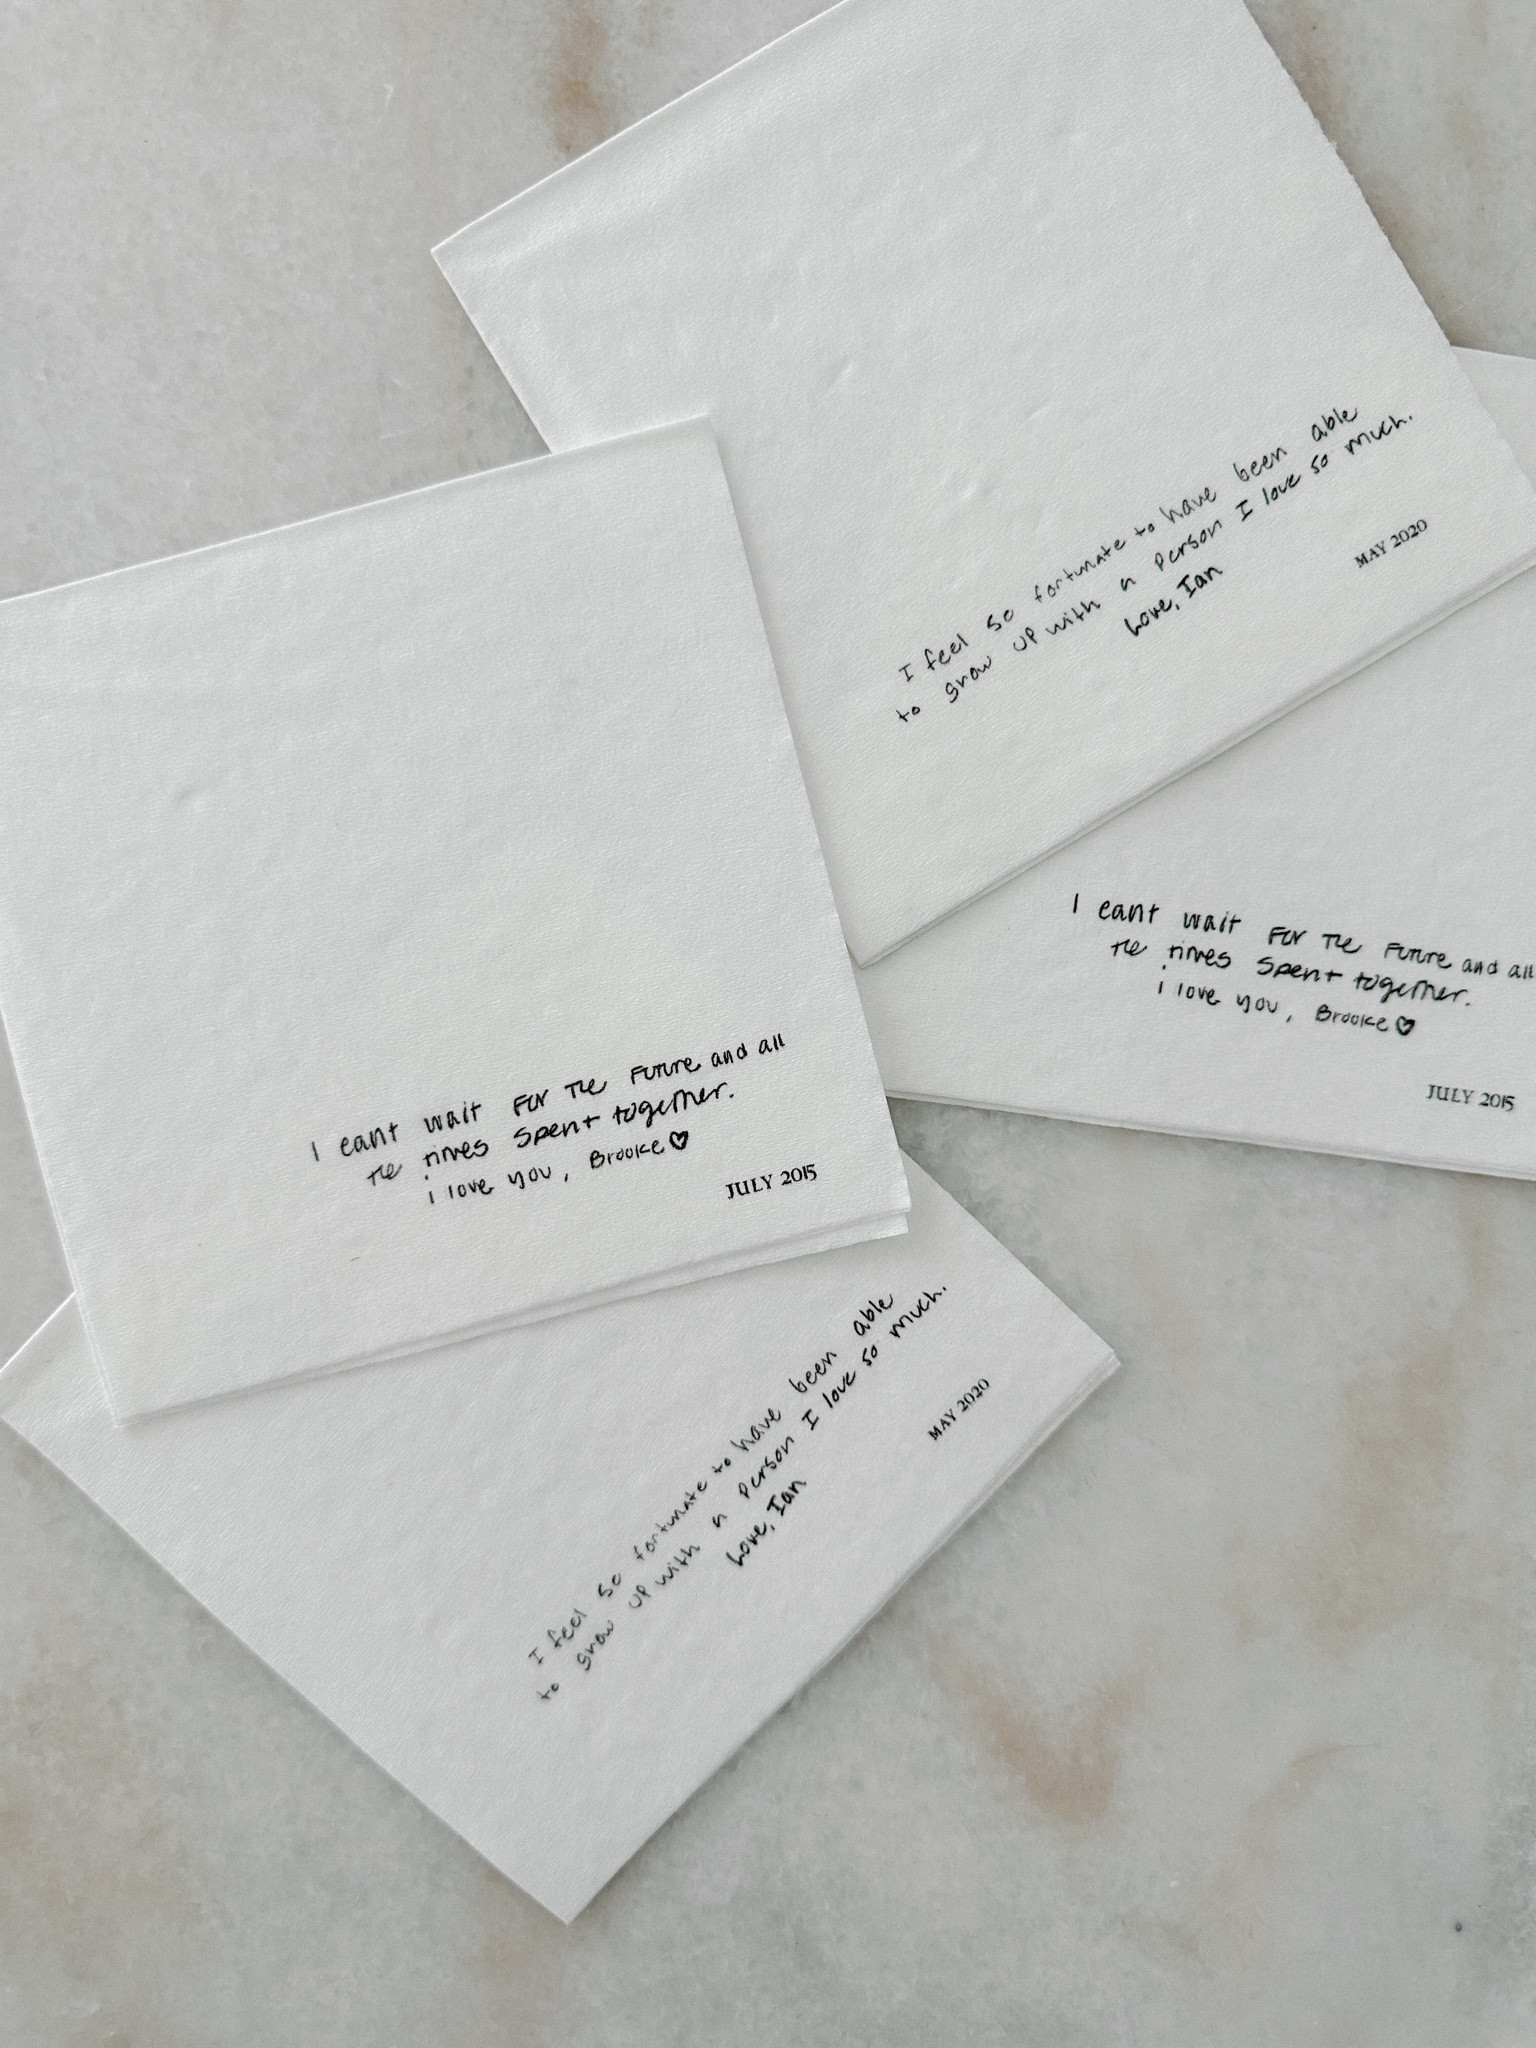 I feel so fortunate to have been able
to grow up with a person I love so much.
Love, Ian
MAY 2020
I cant wait for the future and all
the times spent together.
i love you, Brooke♡
JULY 2015
I cant wait for the future and all
the times spent together.
i love you, Brooke♡
JULY 2015
I feel so fortunate to have been able
to grow up with a person I love so much.
Love, Ian
MAY 2020